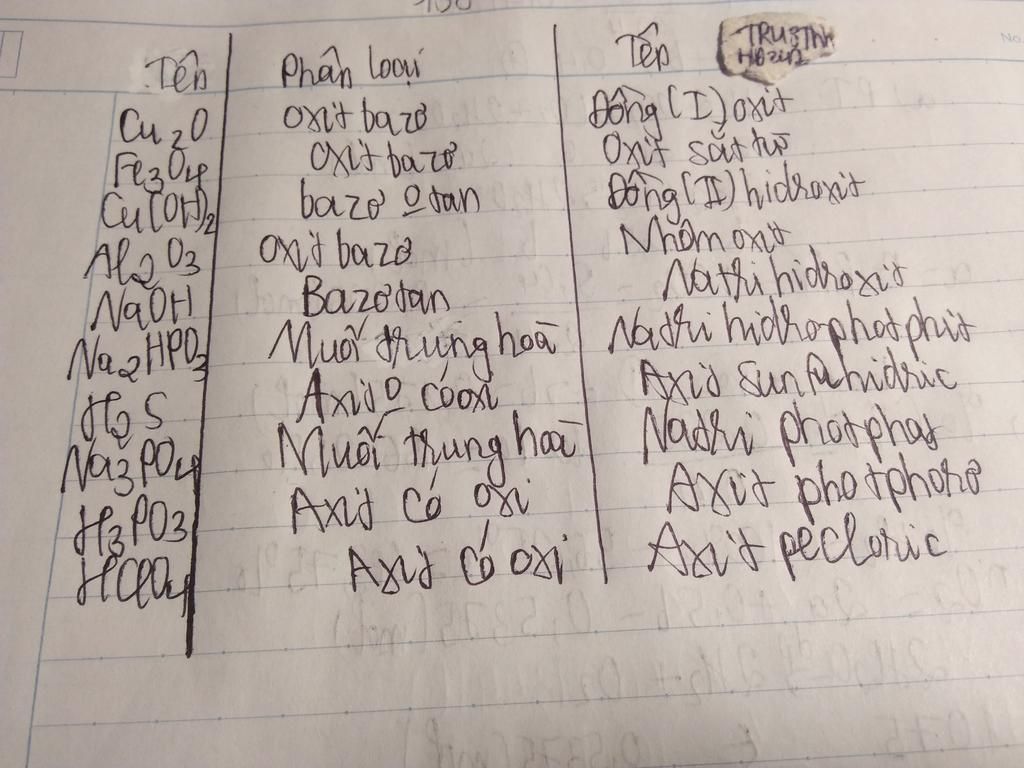 Tên Phân loại Tên TRU3TNH
Cu2O Oxit bazơ Đồng (I) oxit
Fe3O4 Oxit bazơ Oxit sắt từ
Cu(OH)2 bazơ o tan Đồng (II) hidroxit
Al2O3 Oxit bazơ Nhôm oxit
NaOH Bazơ tan Natri hidroxit
Na2HPO3 Muối trung hoà Natri hidrophotphit
H2S Axit o có oxi Axit sunfuhidric
Na3PO4 Muối trung hoà Natri photphat
H3PO3 Axit có oxi Axit photphorơ
HClO4 Axit có oxi Axit pecloric